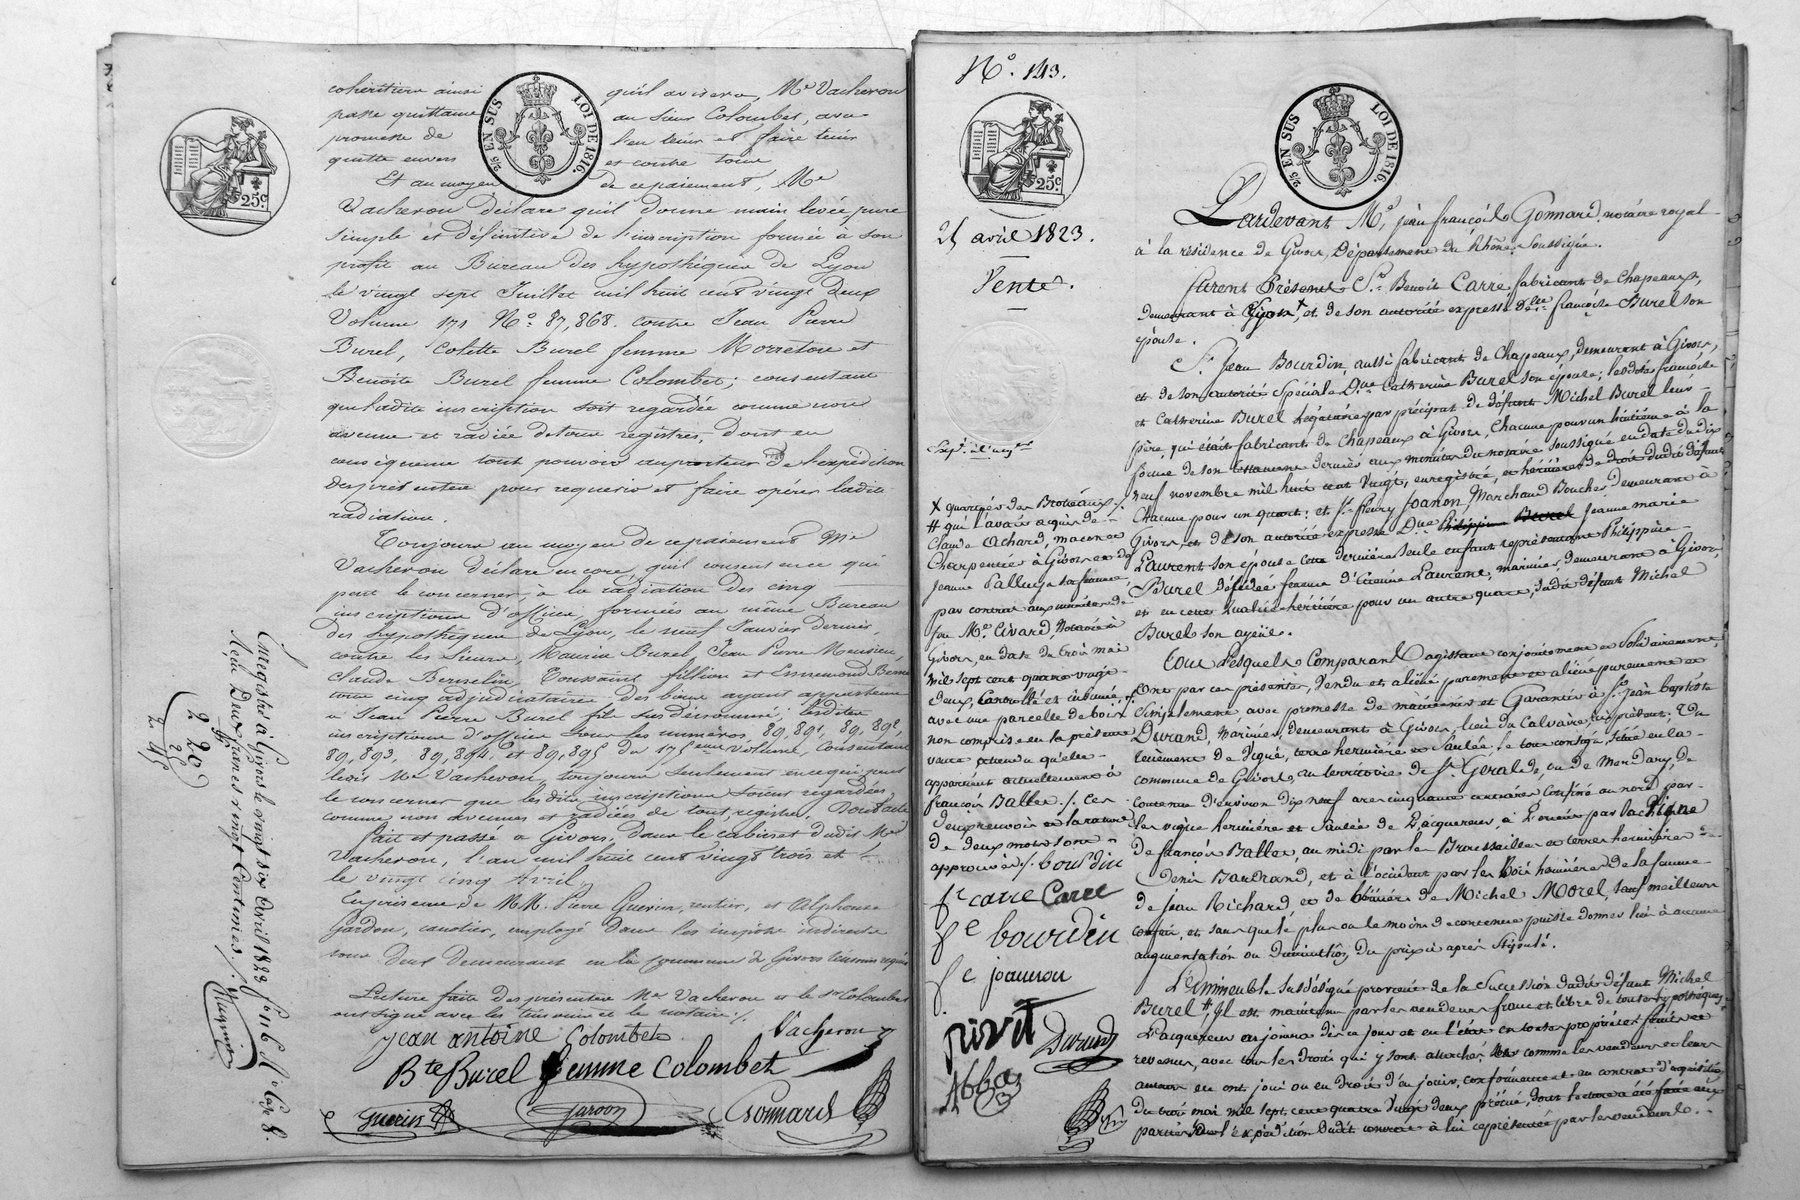 cohéritiers ainsi qu'il avisera, Me Vacheron
passe quittance au sieur Colombet, avec
promesse de l'en tenir et faire tenir
quitte envers et contre tous
2/5 EN SUS LOI DE 1816.
25c.
Et au moyen de ce paiement, Me
Vacheron déclare qu'il donne main levée pure
simple et définitive de l'inscription formée à son
profit au Bureau des hypothèques de Lyon
le vingt sept Juillet mil huit cent vingt deux
Volume 171 No. 87,868. contre Jean Pierre
Burel, Colette Burel femme Morreton et
Benoite Burel femme Colombet; consentant
que ladite inscription soit regardée comme non
avenue et radiée de tous registres, dont en
conséquence tout pouvoir au porteur de l'expédition
des présentes pour requérir et faire opérer ladite
radiation.
Toujours au moyen de ce paiement Me
Vacheron déclare encore qu'il consent en ce qui
peut le concerner, à la radiation des cinq
inscriptions d'office, formées au même Bureau
des hypothèques de Lyon, le neuf Janvier dernier,
contre les Sieurs, Maurice Burel, Jean Pierre
Claude Toussaint fillion et Ennemond
tous cinq adjudicataires des biens ayant appartenu
à Jean Pierre Burel fils sus dénommé; lesdites
inscriptions d'office sous les numéros, 89,891, 89,892,
89,893, 89,894, et 89,895 du 175eme volume, Consentant
Me Vacheron, toujours seulement en ce qui peut
le concerner que lesdites inscriptions soient regardées
comme non avenues et radiées de tous registres, Dont acte
Fait et passé à Givors, Dans le cabinet dudit Me
Vacheron, l'an mil huit cent vingt trois et
le vingt cinq Avril,
En présence de MM. Pierre Guérin, rentier, et Alphonse
Jardon, employé dans les impots indirects
tous deux demeurant en la commune de Givors témoins requis
Lecture faite des présentes Me Vacheron et le sr Colombet
ont signé avec les témoins et le notaire./.
jean antoine Colombet Vacheron
Bte Burel femme Colombet
Guerin Jardon Gonnard
Enregistré à Givors le vingt six Avril 1823 fo Ro Case 8.
Reçu Deux francs vingt Centimes./.
2 20
No. 143.
25c.
25 avril 1823.
Vente.
2/5 EN SUS LOI DE 1816.
Pardevant Me, jean françois Gonnard, notaire royal
à la résidence de Givors, Département du Rhône, Soussigné.
furent Présents Sr. Benoit Carre fabricant de Chapeaux,
demeurant à Lyon x, et de son autorité expresse Dlle françoise Burel son
épouse.
Sr. Jean Bourdin, aussi fabricant de Chapeaux, demeurant à Givors,
et de son autorité Spéciale Dme Catherine Burel son épouse; lesdites françoise
et Catherine Burel légataires par préciput de défunt Michel Burel leur
père, qui était fabricant de Chapeaux à Givors, Chacune pour un huitième à la
forme de son testament dernier aux minutes du notaire soussigné en date du dix
neuf novembre mil huit cent Vingt, enregistré, et héritières de droit dudit défunt
Chacune pour un quart; et Sr. fleury Joanon, Marchand Boucher, demeurant à
Givors, et de son autorité expresse Dme Philippine Burel Jeanne marie
Laurent son épouse Cette dernière Seule enfant représentant Philippine
Burel décédée femme d'Etienne Laurent, marinier, demeurant à Givors,
et en cette qualité héritière pour un autre quart, dudit défunt Michel
Burel son ayeul.
Tous Lesquels Comparants agissant conjointement et Solidairement,
Ont par ces présentes, Vendu et aliéné purement et
Simplement, avec promesse de maintenir et Garantir à Sr. jean baptiste
Durand, marinier, demeurant à Givors, lieu du Calvaire, ici présent; Un
tènement de Vigne, terre hermière et Saulée, le tout contigu, situé en la
commune de Givors, au territoire de St. Gerald, ou de Montary, de
Contenue d'environ dix neuf ares cinquante centiares Confiné au nord par
les vigne hermière et Saulée de l'acquéreur, à l'orient par la Vigne
de françois Ballet, au midi par les Broussailles et terres hermières de
Denis Baudrand, et à l'occident par les Bois hermières de la femme
de Jean Richard, et de bruière de Michel Morel, Sauf meilleurs
confins, et, sans que le plus ou le moins de contenue puisse donner lieu à aucune
augmentation ou diminution, du prix ci après Stipulé.
L'immeuble Susdésigné provient de la Succession dudit défunt Michel
Burel # Il est maintenu par les vendeurs franc et libre de toutes hypothèques,
L'acquéreur en jouira dès ce jour et en l'état en toute propriété fruits et
revenus, avec tous les droits qui y sont attachés, comme les vendeurs et leurs
auteurs en ont joui ou eu droit d'en jouir, conformément au contrat d'acquisition
du trois mai mil sept cent quatre Vingt deux précité, dont lecture a été faite aux
parties Sur l'expédition dudit contrat à lui représentée par les vendeurs.
x quartier des Broteaux./.
# qui l'avait acquis de
Claude Achard, maçon et
Charpentier à Givors et de
Jeanne Palluy sa femme,
par contrat aux minutes de
feu Me. Civard, Notaire à
Givors, en date du trois mai
mil sept cent quatre vingt
Deux, Controllé et insinué,
avec une parcelle de bois
non comprise en la présente
vente attendu qu'elle
appartient actuellement à
françois Ballet ./. ces
deux renvois et la rature
de deux mots sont
approuvés ./. bourdin
fe carre Carre
fe bourdin
fe joannon
rivet Durand
Abba